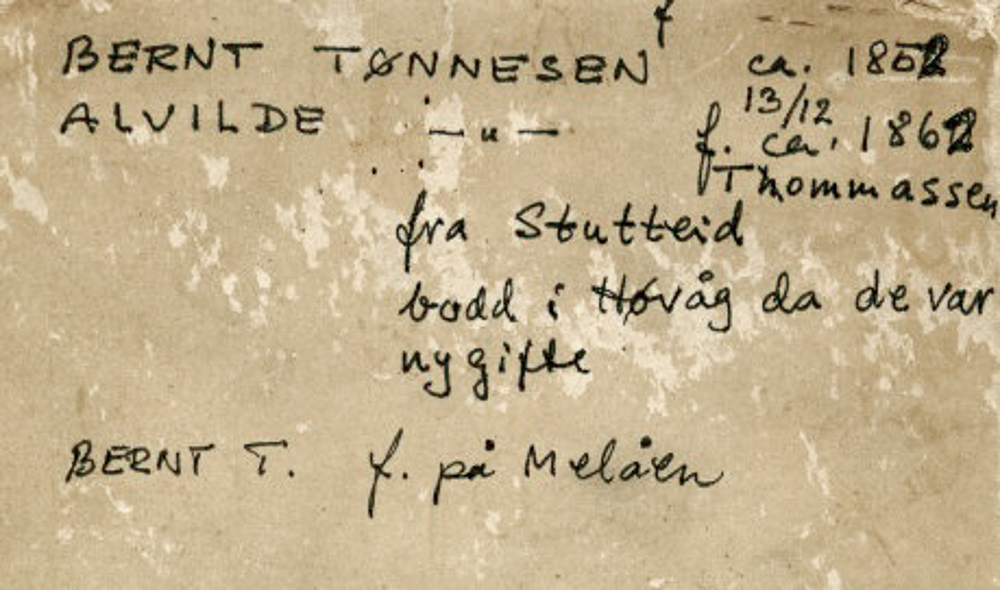 BERNT TØNNESEN f ca. 1852
13/12
ALVILDE — " — f. ca. 1862
Thommassen
fra Stutteid
bodd i Høvåg da de var
nygifte
BERNT T. f. på Melåen